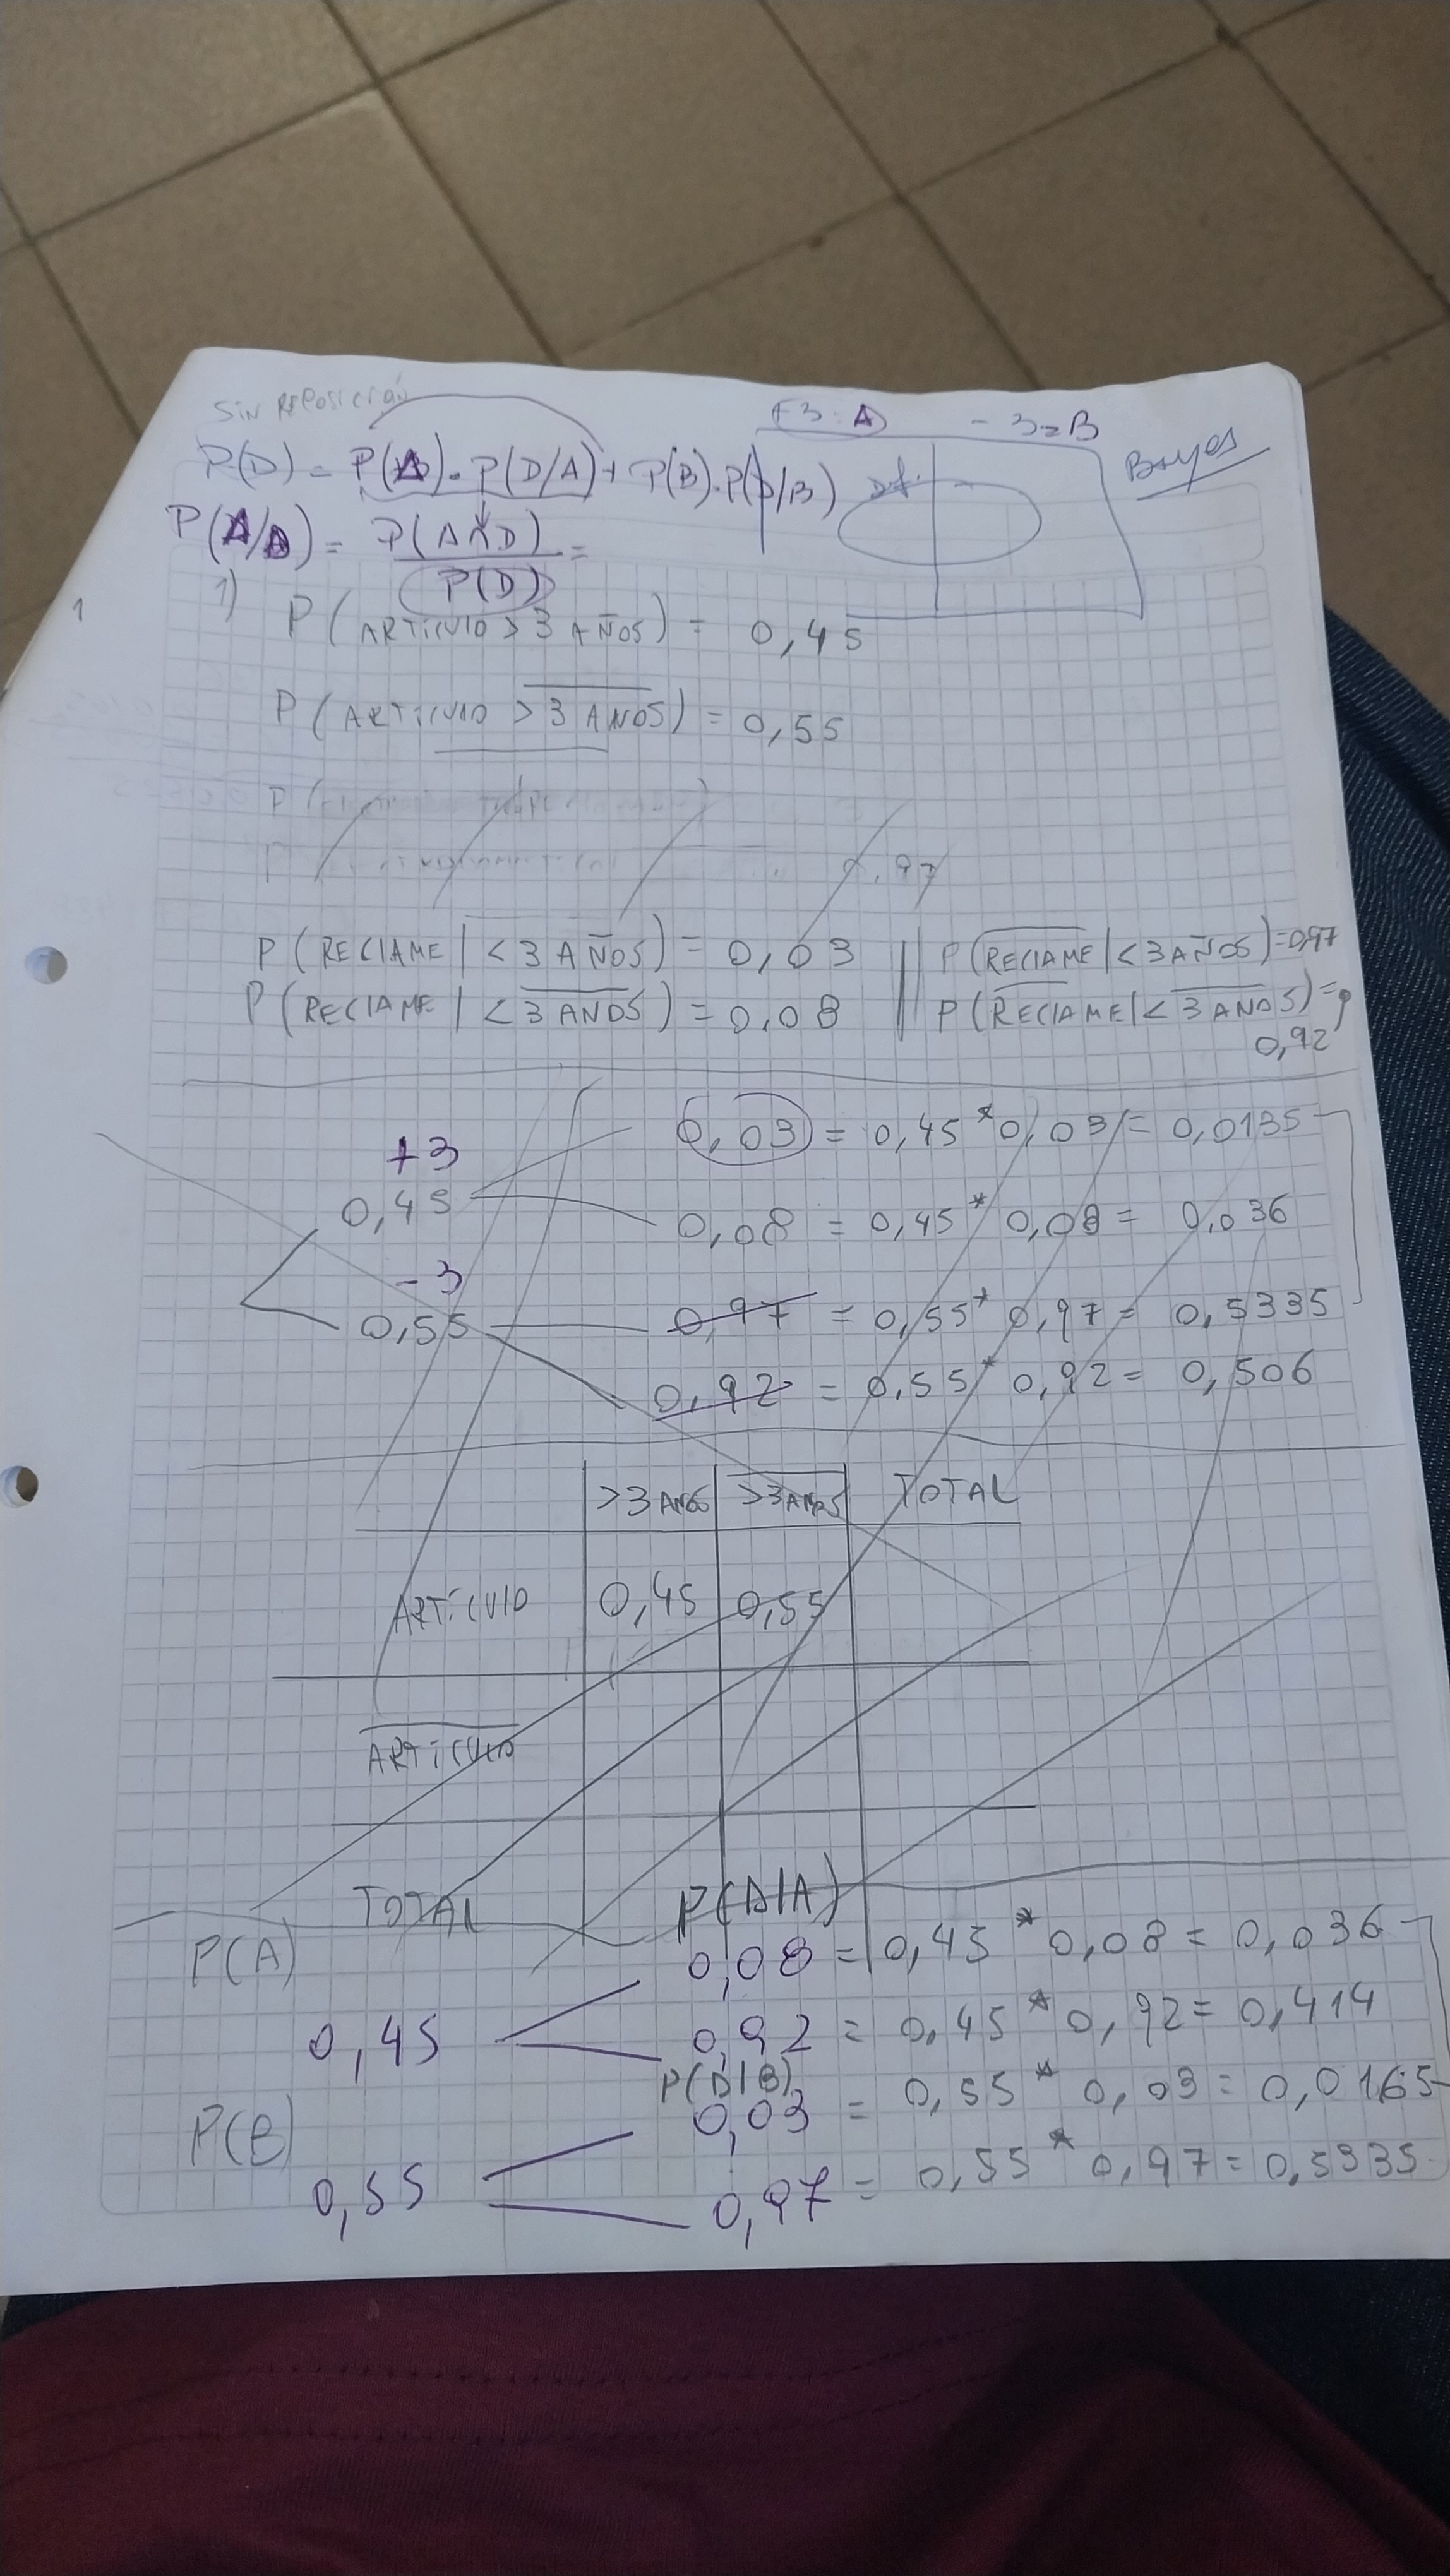 Sin REPOSICIÓN
+3 = A - 3 = B
P(D) = P(A) . P(D/A) + P(B) . P(D/B)
Bayes
P(A/D) = P(A∩D) =
P(D)
1
1)
P(ARTÍCULO > 3 AÑOS) = 0,45
P(ARTÍCULO > 3 AÑOS) = 0,55
0,97
P(RECLAME | < 3 AÑOS) = 0,03 || P(RECLAME | < 3 AÑOS) = 0,97
P(RECLAME | < 3 AÑOS) = 0,08 || P(RECLAME | < 3 AÑOS) =
0,92
0,03 = 0,45 * 0,03 = 0,0135
+3
0,45
0,08 = 0,45 * 0,08 = 0,036
- 3
0,55
0,97 = 0,55 * 0,97 = 0,5335
0,92 = 0,55 * 0,92 = 0,506
>3 AÑOS >3 AÑOS TOTAL
ARTÍCULO 0,45 0,55
ARTÍCULO
TOTAL
P(D|A)
P(A)
0,08 = 0,45 * 0,08 = 0,036
0,45
0,92 = 0,45 * 0,92 = 0,414
P(D|B)
P(B)
0,03 = 0,55 * 0,03 = 0,0165
0,55
0,97 = 0,55 * 0,97 = 0,5335